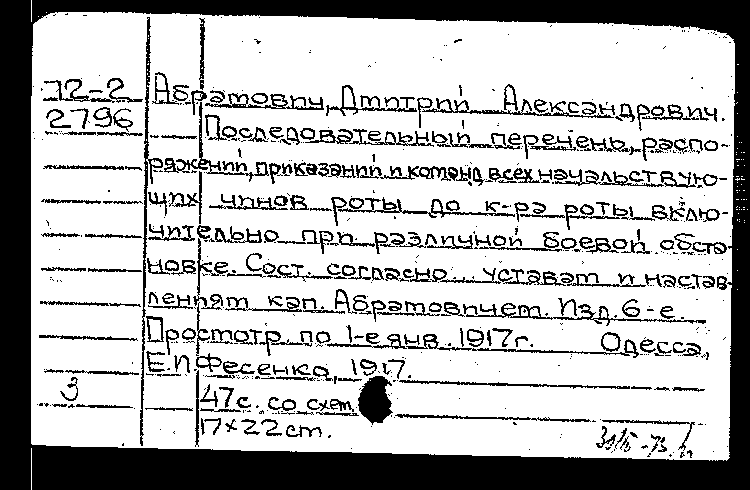 72-2 Абратович, Дмитрий Александрович.
2796 Последовательный перечень, распо-
ряжений, приказаний и команд всех начальствую-
щих чинов роты до к-ра роты вклю-
чительно при различной боевой обста-
новке. Сост. согласно... уставам и настав-
лениям кап. Абратовичем. Изд. 6-е.
Просмотр. по 1-е янв. 1917г. Одесса,
Е.И Фесенко, 1917.
3 47с. со схем.
17×22 cm.